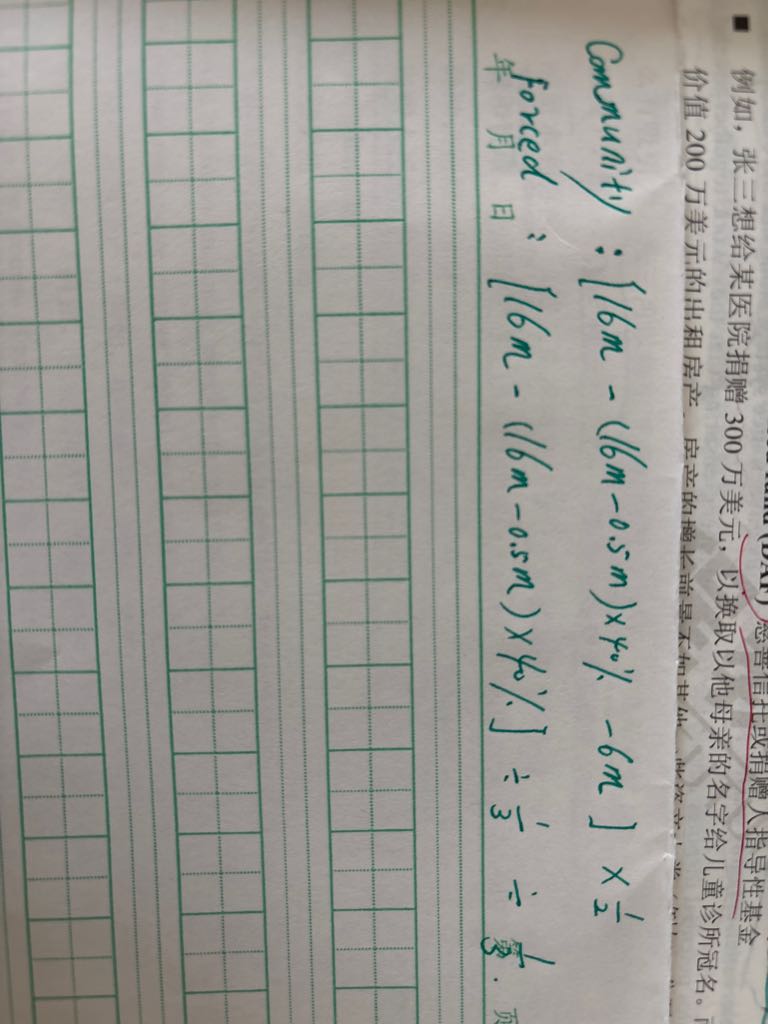 慈善信托或捐赠人指导性基金
■ 例如，张三想给某医院捐赠 300 万美元，以换取以他母亲的名字给儿童诊所冠名。
价值 200 万美元的出租房产
Community : [16m - (16m - 0.5m) × 40% - 6m] × 1/2
forced : [16m - (16m - 0.5m) × 40%] ÷ 1/3 ÷ 1/3
年 月 日 第 页